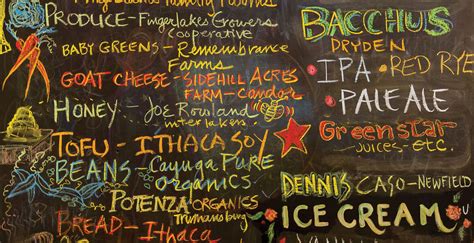 Family Farms
PRODUCE - Fingerlakes Growers
Cooperative
BABY GREENS - Remembrance
Farms
GOAT CHEESE - SIDEHILL ACRES
FARM - Candor
HONEY - JOE Rowland
interlaken
TOFU - ITHACA SOY
BEANS - Cayuga PURE
organics
POTENZA ORGANICS
Trumansburg
BREAD - Ithaca
BACCHUS
DRYDEN
IPA RED RYE
PALE ALE
Greenstar
JUICES - etc.
DENNIS CASO - NEWFIELD
ICE CREAM